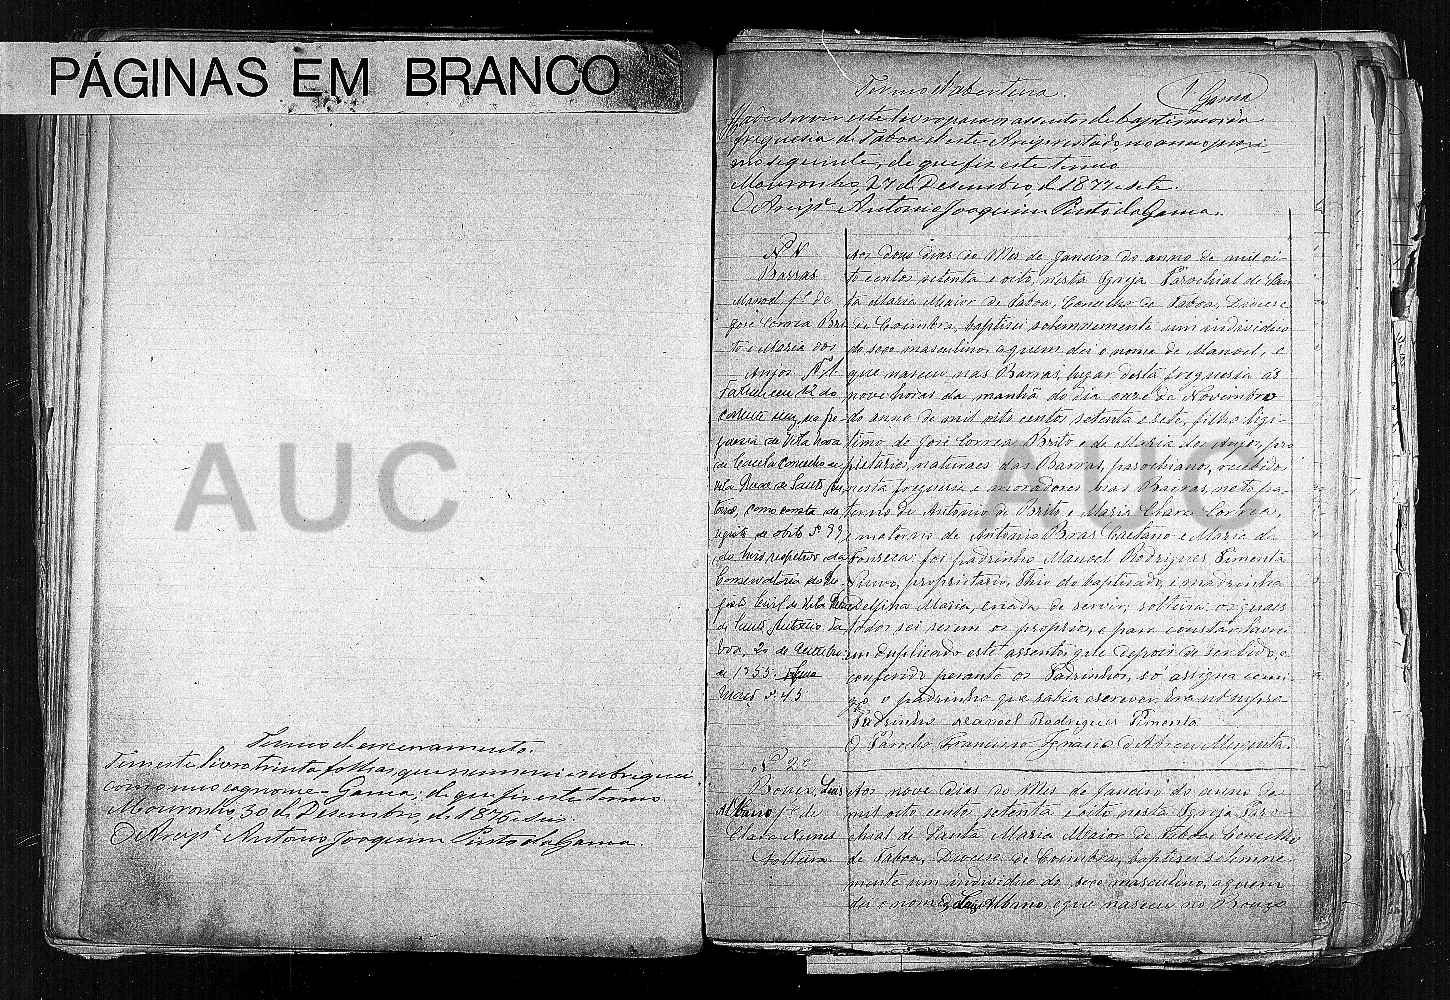 PÁGINAS EM BRANCO
Termo d'encerramento.
Tem este livro trinta folhas, que numerei e rubriquei
com o meu cognome - Gama, de que fiz este termo
Mouronho, 30 de Desembro, de 1876 e seis.
O Arcip.e Antonio Joaquim Pinto da Gama.
Termo d'abertura.
1 Gama
Hade servir este livro para os assentos de baptismo da
freguesia de Taboa d'este Arciprestado, no anno proxi-
mo seguinte, de que fiz este termo
Mouronho, 27 de Desembro, de 1877 e sete.
O Arcip.e Antonio Joaquim Pinto da Gama.
N.º 1
Barras
Manoel f.º de
José Correa Bri
to e Maria dos
Anjos
Faleceu em 12 do
corrente mez, na fre-
guesia de Vila Nova
de Cacela concelho de
Vila Real de Santo An
tonio, como consta do
registo de obito nº 99
do livro respetivo da
Conservatória do Re-
gisto Civil de Vila Real
de Santo António. Ta
boa, 20 de
de 1955.
nº 45
Aos dous dias do Mes de Janeiro do anno de mil oi-
to centos setenta e oito, nesta Igreja Parochial de San
ta Maria Maior de Taboa, Concelho de Taboa, Diocese
de Coimbra, baptisei solemnemente um individuo
do sexo masculino, a quem dei o nome de Manoel, e
que nasceu nas Barras, lugar desta freguesia ás
nove horas da manhã do dia onze de Novembro
do anno de mil oito centos setenta e sete, filho legi-
timo de José Correa Brito e de Maria dos Anjos, pro
prietarios, naturaes das Barras, parochianos, recebidos
nesta freguesia e moradores nas Barras, neto pa-
terno de Antonio de Brito e Maria Clara Correa,
e materno de Antonio Bras Caetano e Maria da
Fonseca: foi padrinho Manoel Rodrigues Pimenta
Viuvo, proprietario, Thio do baptisado, e madrinha
Delfina Maria, criada de servir, solteira: os quaes
todos sei serem os proprios, e para constar lavrei
em duplicado este assento, que depois de ser lido, e
conferido perante os Padrinhos, só assigna comi
go o padrinho que sabia escrever. Era ut supra.
Padrinho Manoel Rodrigues Pimenta
O Parocho Francisco Ignacio d'Abreu Mesquita.
N.º 2º
Luis
Albano f.º de
Clara Nunes
Solteira
Aos nove dias do Mes de Janeiro do anno de
mil oito cento setenta e oito nesta Igreja Paro-
chial de Santa Maria Maior de Taboa Concelho
de Taboa, Diocese de Coimbra, baptisei solemne
mente um individuo do sexo masculino, a quem
dei o nome de Luis Albano, e que nasceu no
AUC
AUC